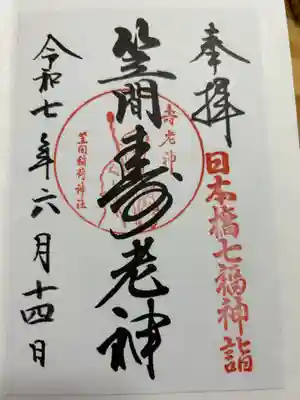 奉拝
日本橋七福神詣
笠間寿老神
寿老神
笠間稲荷神社
令和七年六月十四日